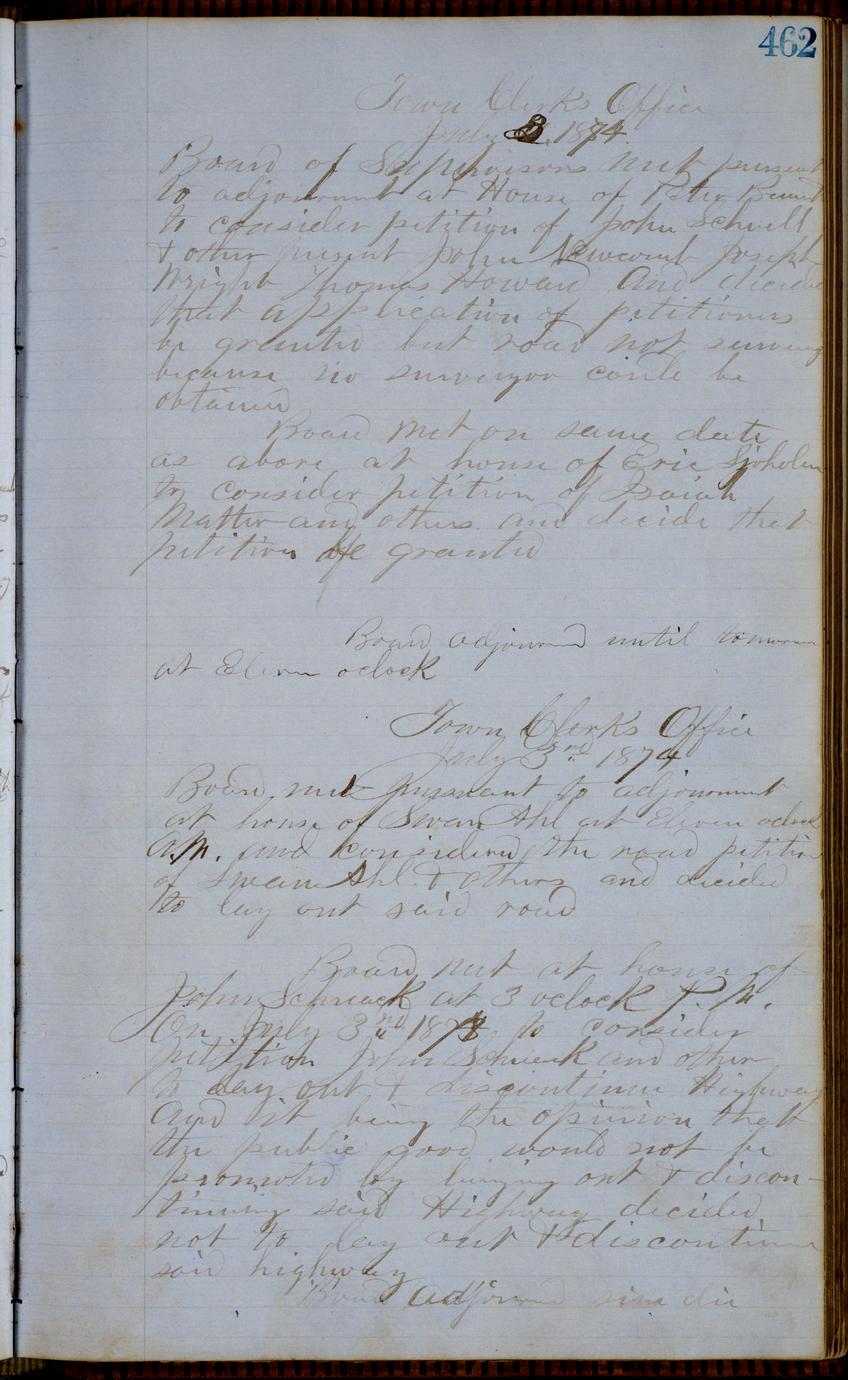 462
Town Clerks Office
July 2 1874
Board of Supervisors met pursuant
to adjournment at House of Peter
to consider petition of John Schnell
& other present John Newcomb Joseph
Wright Thomas Howard And decided
that application of petitioners
be granted but road not surveyed
because no surveyor could be
obtained
Board met on same date
as above at house of Eric Sjoholm
to consider petition of Isaiah
Matter and others and decide that
petition be granted
Board adjourned until tomorrow
at Eleven oclock
Town Clerks Office
July 3nd 1874
Board met pursuant to adjournment
at house of Swan Ahl at Eleven oclock
A.M. and considered the road petition
of Swan Ahl & others and decided
to lay out said road
Board met at house of
John Schneack at 3 oclock P.M.
On July 3nd 1874 to consider
petition John Schneack and other
to lay out & discontinue Highway
and it being the opinion that
the public good would not be
promoted by laying out & discon-
tinuing said Highway decided
not to lay out & discontinue
said highway
Board adjorned sine die